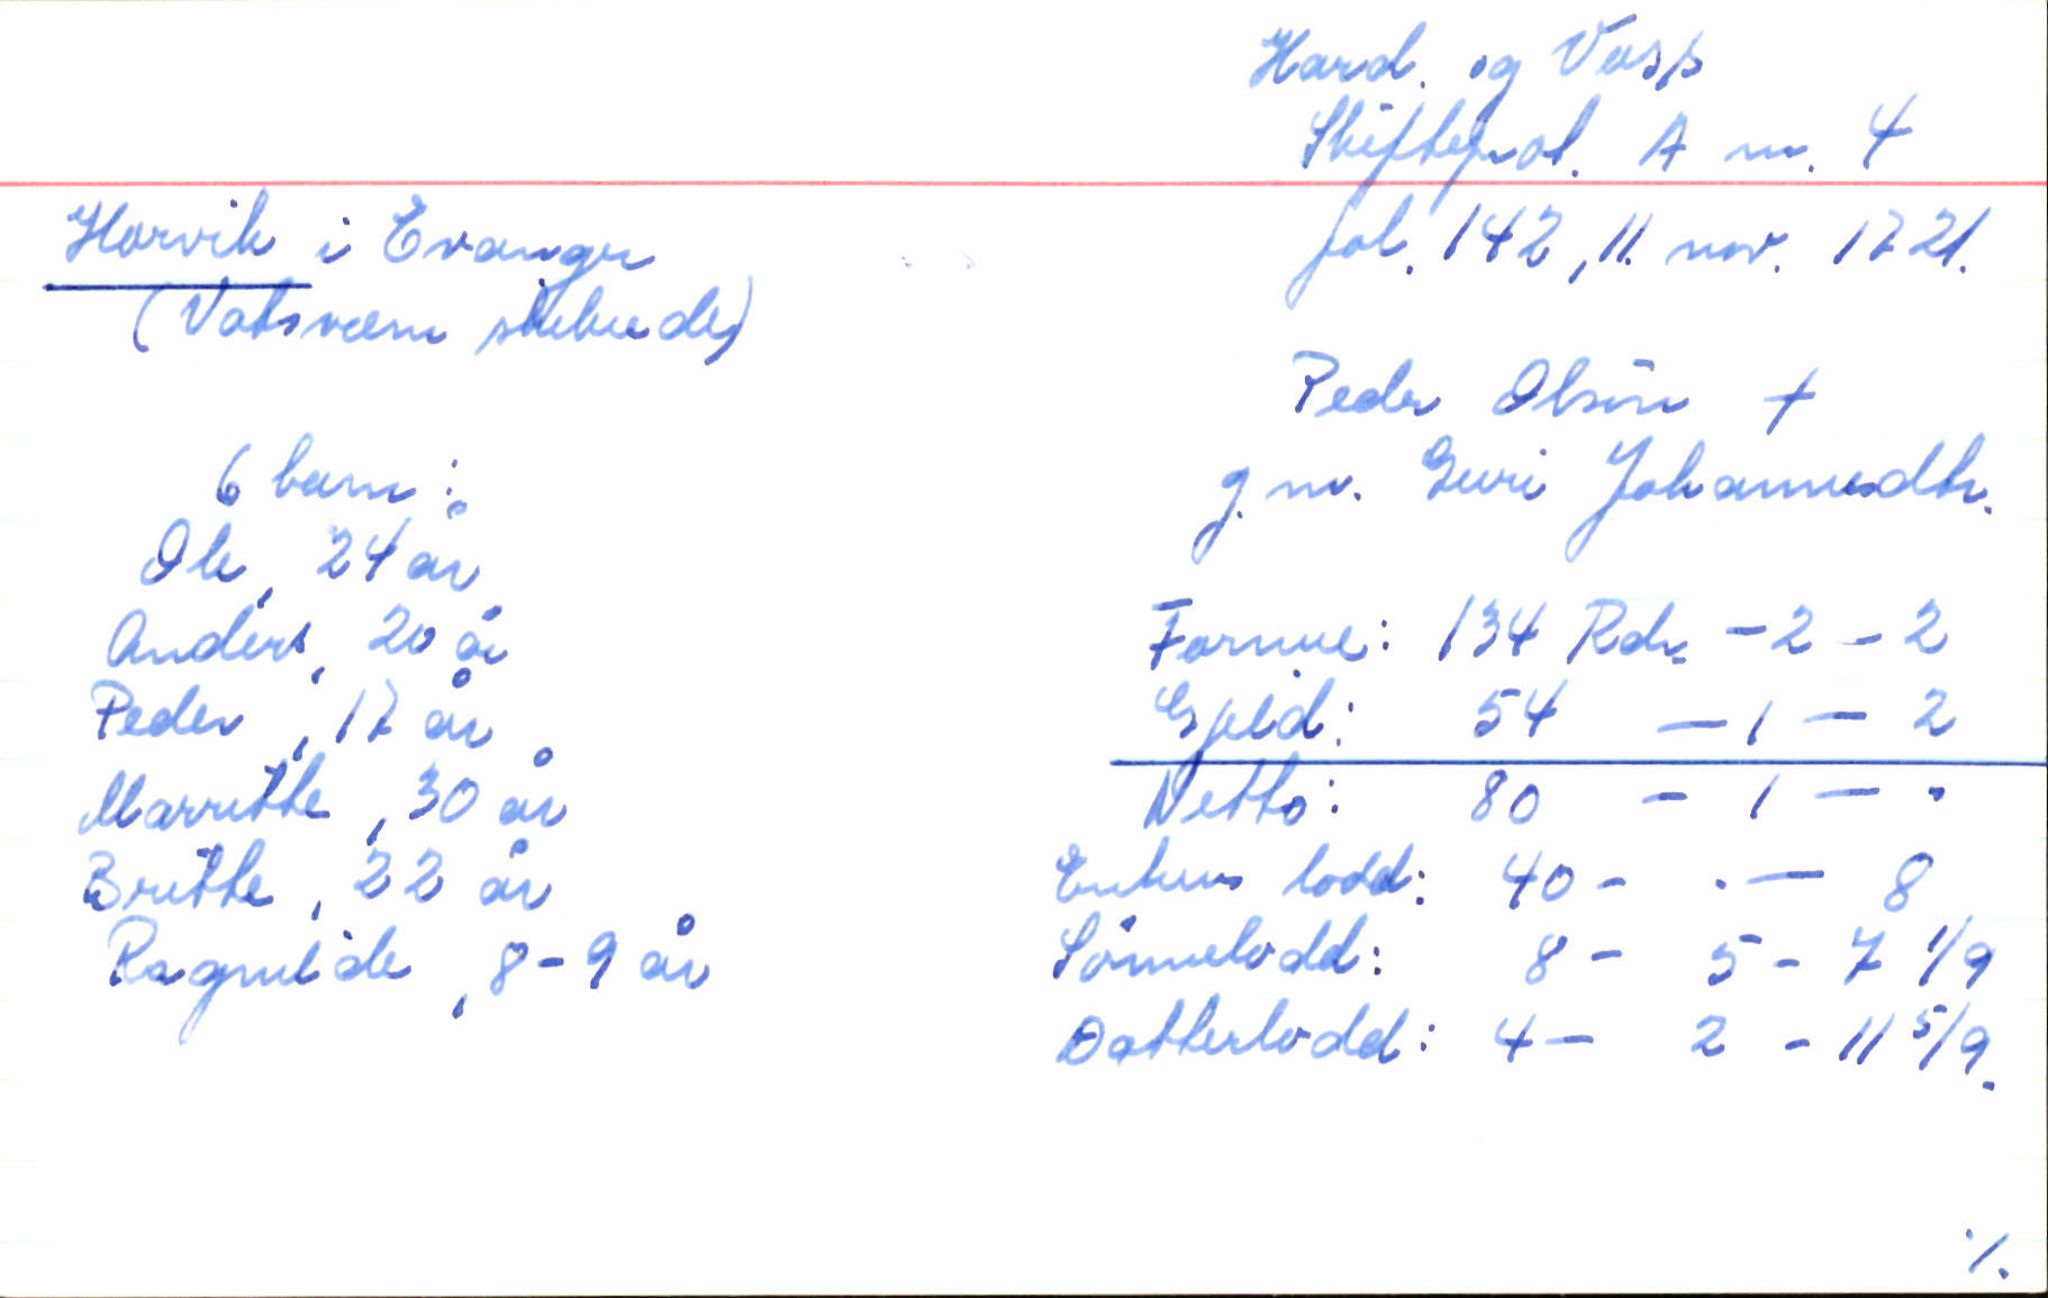 Hard. og Voss
Skifteprot. A nr. 4
fol. 142, 11. nov. 1721.
Horvik i Evanger
(Vatsværn skibrede)
Peder Olsøn +
g. m. Guri Johannesdtr.
6 barn:
Ole, 24 år
Anders, 20 år
Peder, 17 år
Marritte, 30 år
Britte, 22 år
Ragnilde, 8-9 år
Formue: 134 Rdr. - 2 - 2
Gjeld: 54 - 1 - 2
Netto: 80 - 1 - .
Enkens lodd: 40 - . - 8
Sønnelodd: 8 - 5 - 7 1/9
Datterlodd: 4 - 2 - 11 5/9.
./.